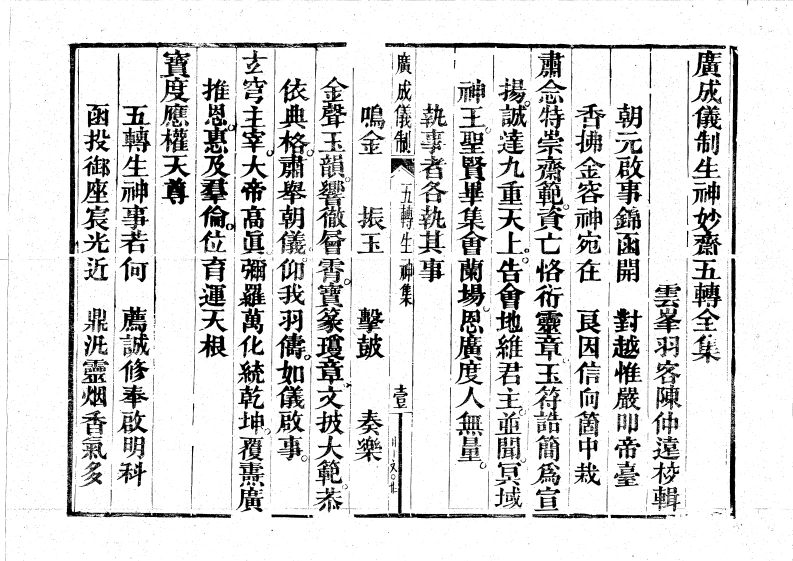 廣成儀制生神妙齋五轉全集
雲峯羽客陳仲遠校輯
朝元啟事錦函開　對越惟嚴叩帝臺
香拂金容神宛在　良因信向箇中栽
肅念特崇齋範。資亡恪衍靈章。玉符誥簡爲宣
揚。誠達九重天上。告會地維君主。並聞冥域
神王。聖賢畢集會蘭場。恩廣度人無量。
執事者各執其事
廣成儀制　五轉生神集　壹
鳴金　振玉　擊鼓　奏樂
金聲玉韻。響徹層霄。寶篆瓊章。文披大範。恭
依典格。肅舉朝儀。仰我羽儔。如儀啟事。
玄穹主宰。大帝高眞。彌羅萬化統乾坤。覆燾廣
推恩。惠及羣倫。位育運天根
寶度應權天尊
五轉生神事若何　薦誠修奉啟明科
函投御座宸光近　鼎汎靈烟香氣多